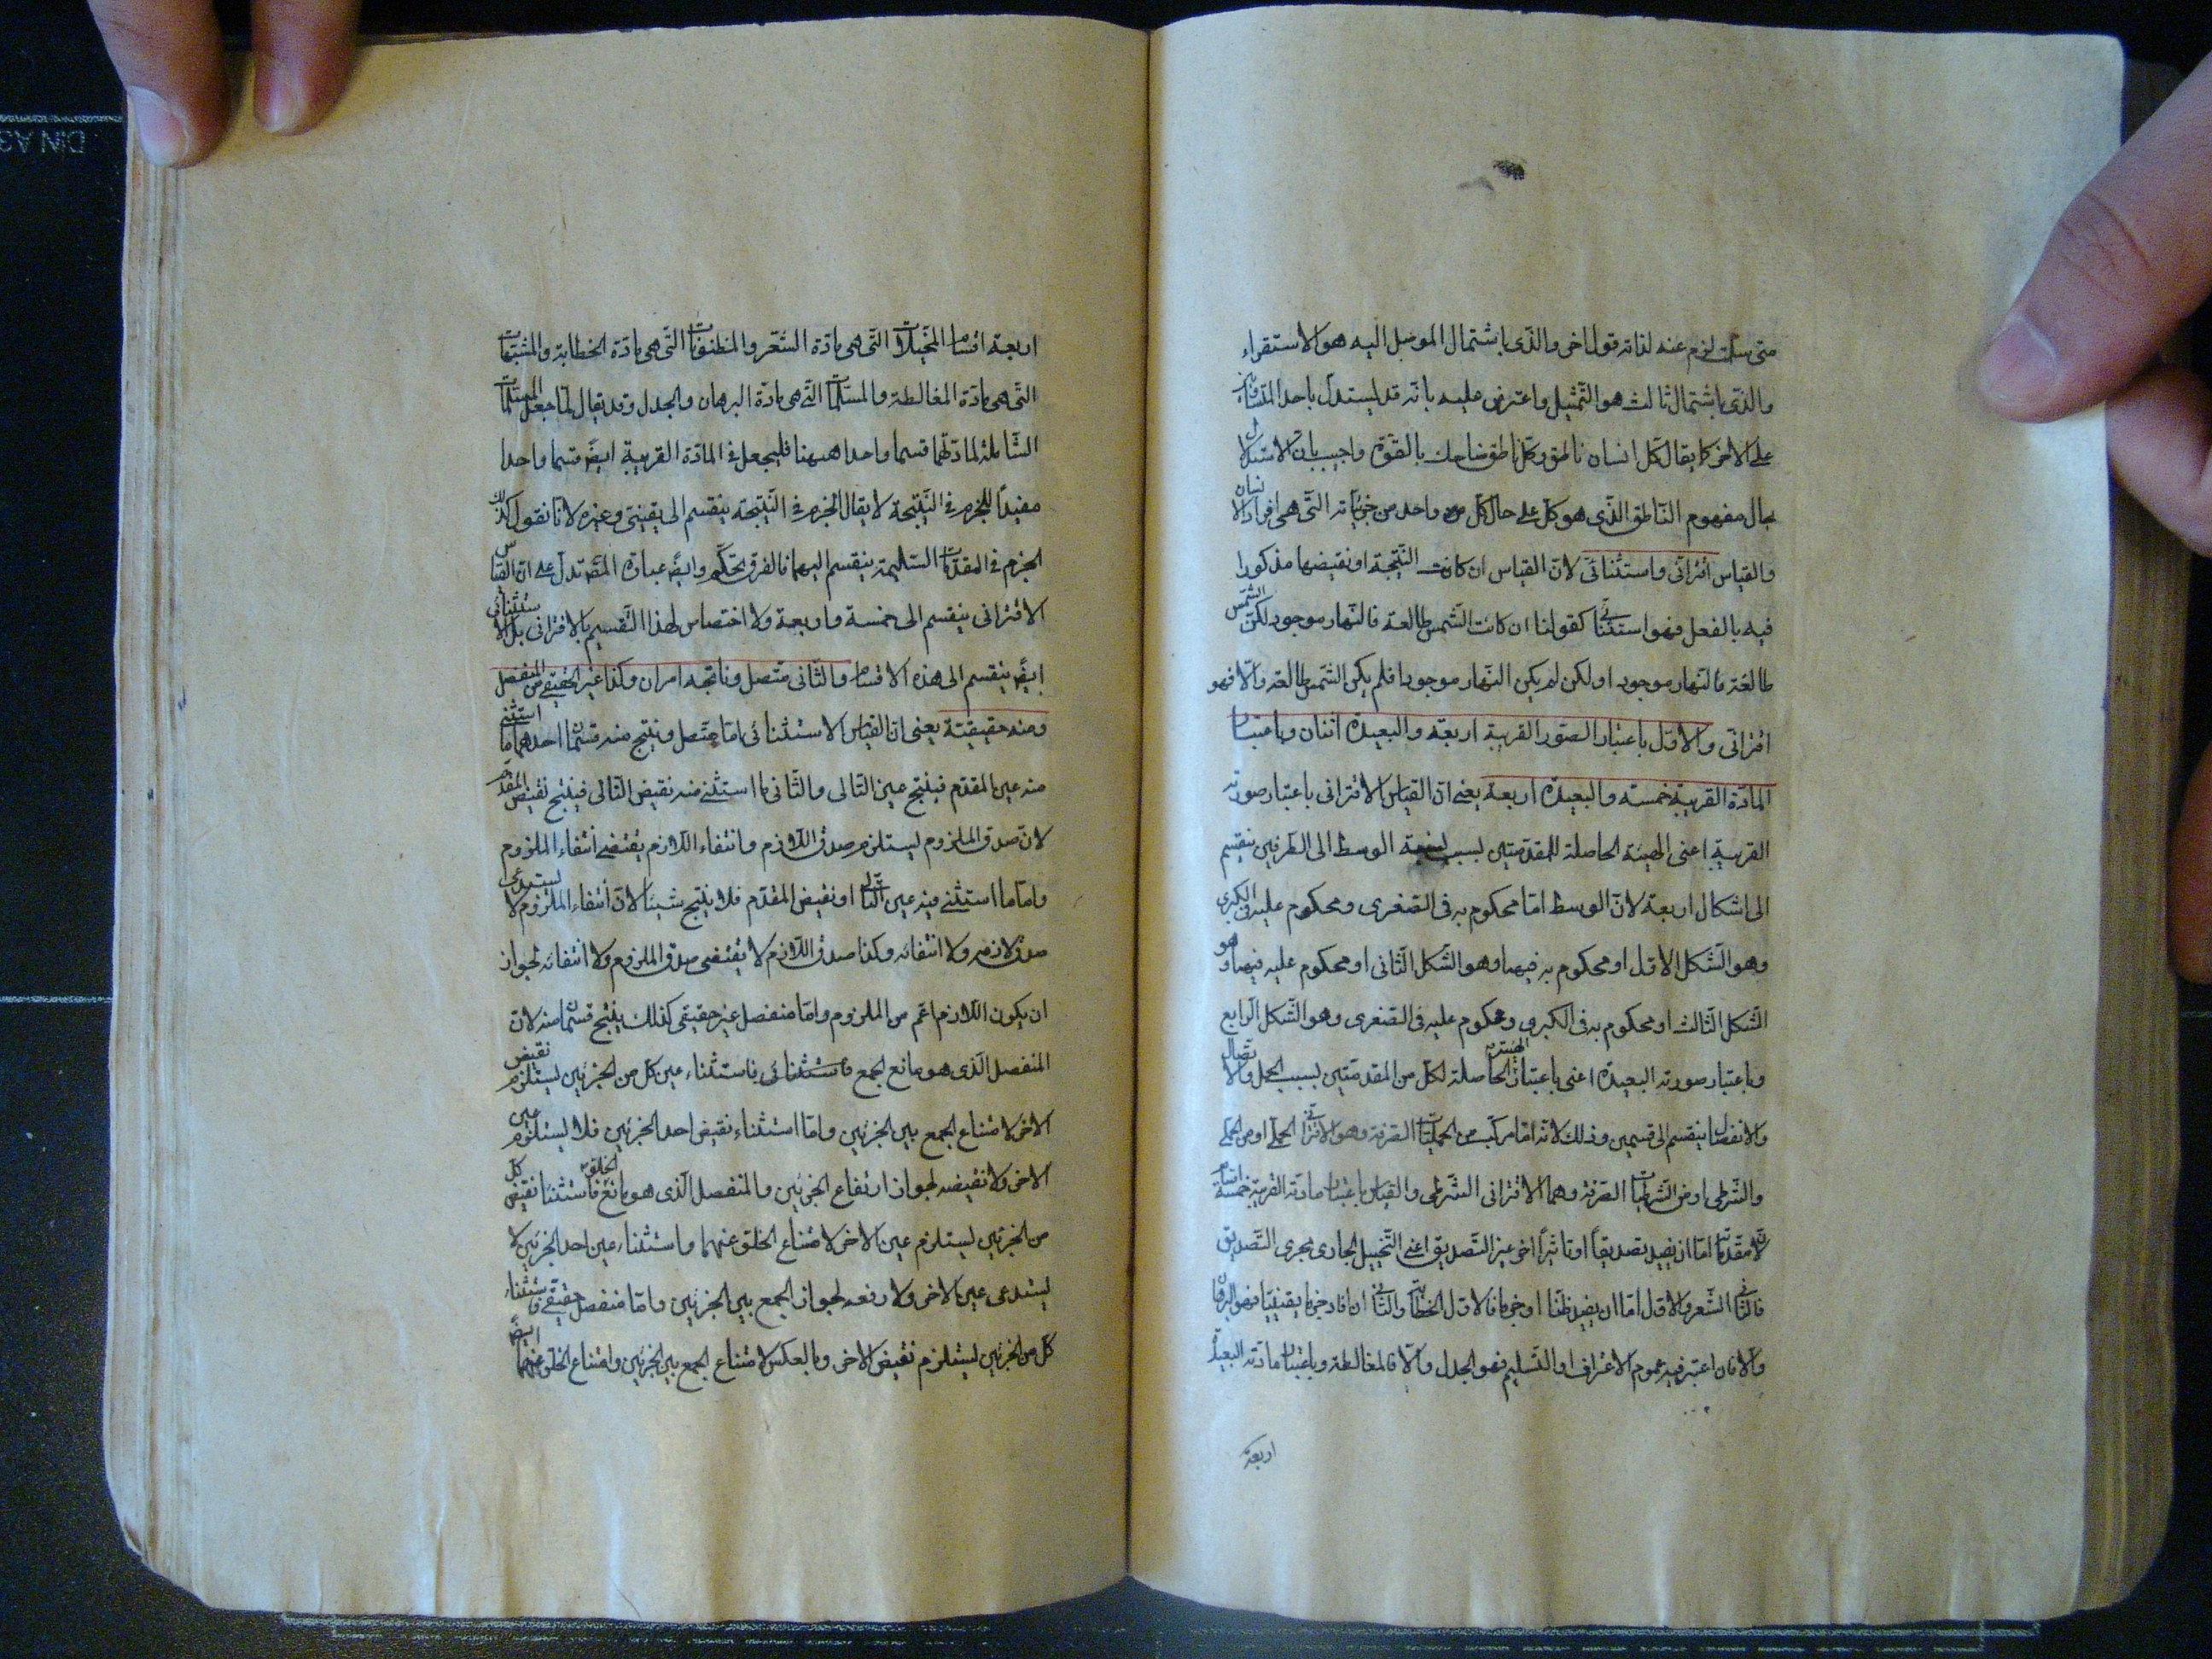 متى سلمت لزم عنه لذاته قول اخر والذى باشتمال الموصل اليه هو الاستقراء
والذى باشتمال ثالث هو التمثيل واعترض عليه بانه قد يستدل باحد المتساويين
على الاخر كما يقال كل انسان ناطق وكل ناطق ضاحك بالقوة واجيب بان الاستدلال
بحال مفهوم الناطق الذى هو كل على حال كل واحد من جزئياته التى هى افراد الانسان
والقياس اقترانى واستثنائى لان القياس ان كانت النتيجة او نقيضها مذكورا
فيه بالفعل فهو استثنائى كقولنا ان كانت الشمس طالعة فالنهار موجود لكن الشمس
طالعة فالنهار موجود او لكن لم يكن النهار موجودا فلم يكن الشمس طالعة والا فهو
اقترانى والاول باعتبار الصور القريبة اربعة والبعيدة اثنان وباعتبار
المادة القريبة خمسة والبعيدة اربعة يعنى ان القياس الاقترانى باعتبار صورته
القريبة اعنى الهيئة الحاصلة للمقدمتين بسبب نسبة الوسط الى الطرفين ينقسم
الى اشكال اربعة لان الوسط اما محكوم به فى الصغرى ومحكوم عليه فى الكبرى
وهو الشكل الاول او محكوم به فيهما وهو الشكل الثانى او محكوم عليه فيهما وهو
الشكل الثالث او محكوم به فى الكبرى ومحكوم عليه فى الصغرى وهو الشكل الرابع
وباعتبار صورته البعيدة اعنى باعتبار الهيئة الحاصلة لكل من المقدمتين بسبب الحمل والاتصال
والانفصال ينقسم الى قسمين وذلك لانه اما مركب من الحمليات الصرفة وهو الاقترانى الحملى او من الحملى
والشرطى او من الشرطيات الصرفة وهما الاقترانى الشرطى والقياس باعتبار مادته القريبة خمسة اقسام
لان مقدماته اما ان يفيد تصديقاً او تاثيراً اخر غير التصديق اعنى التخييل الجارى مجرى التصديق
فالثانى الشعر والاول اما ان يفيد ظنا او جزما فالاول الخطابة والثانى ان افاد جزما يقينيا فهو البرهان
والا فان اعتبر فيه عموم الاعتراف او التسليم فهو الجدل والا فالمغالطة وباعتبار مادته البعيدة
اربعة
اربعة اقسام المخيلات التى هى مادة الشعر والمظنونات التى هى مادة الخطابة والمشبهات
التى هى مادة المغالطة والمسلمات التى هى مادة البرهان والجدل وقد يقال لما جعل المسلمات
الشاملة لمادتهما قسما واحدا ههنا فليجعل فى المادة القريبة ايضً قسما واحدا
مفيدًا للجزم فى النتيجة لا يقال الجزم فى النتيجة ينقسم الى يقينى وغيره لانا نقول كذلك
الجزم فى المقدمات السليمة ينقسم اليهما فالفرق تحكم وايضً عبارة المصَ تدل على ان القياس
الاقترانى ينقسم الى خمسة واربعة ولا اختصاص لهذا التقسيم بالاقترانى بل الاستثنائى
ايضً ينقسم الى هذه الاقسام والثانى متصل وناتجه امران وكذا غير الحقيقى من المنفصل
ومنه حقيقية يعنى ان القياس الاستثنائى اما متصل وينتج منه قسمان احدهما ما استثنى
منه عين المقدم فينتج عين التالى والثانى ما استثنى منه نقيض التالى فينتج نقيض المقدم
لان صدق الملزوم يستلزم صدق اللازم وانتفاء اللازم يقتضى انتفاء الملزوم
واما ما استثنى فيه عين التالى او نقيض المقدم فلا ينتج شيئا لان انتفاء الملزوم لا يستدعى
صدق لازمه ولا انتفائه وكذا صدق اللازم لا يقتضى صدق الملزوم ولا انتفائه لجواز
ان يكون اللازم اعم من الملزوم واما منفصل غير حقيقى كذلك ينتج قسمان منه لان
المنفصل الذى هو مانع الجمع فاستثنائى باستثناء عين كل من الجزئين يستلزم نقيض
الاخر لامتناع الجمع بين الجزئين واما استثناء نقيض احد الجزئين فلا يستلزم عين
الاخر ولا نقيضه لجواز ارتفاع الجزئين والمنفصل الذى هو مانع الخلو فاستثناء نقيض كل
من الجزئين يستلزم عين الاخر لامتناع الخلو عنهما واستثناء عين احد الجزئين لا
يستدعى عين الاخر ولا رفعه لجواز الجمع بين الجزئين واما منفصل حقيقى فاستثناء
كل من الجزئين يستلزم نقيض الاخر وبالعكس لامتناع الجمع بين الجزئين وامتناع الخلو عنهما ايضً